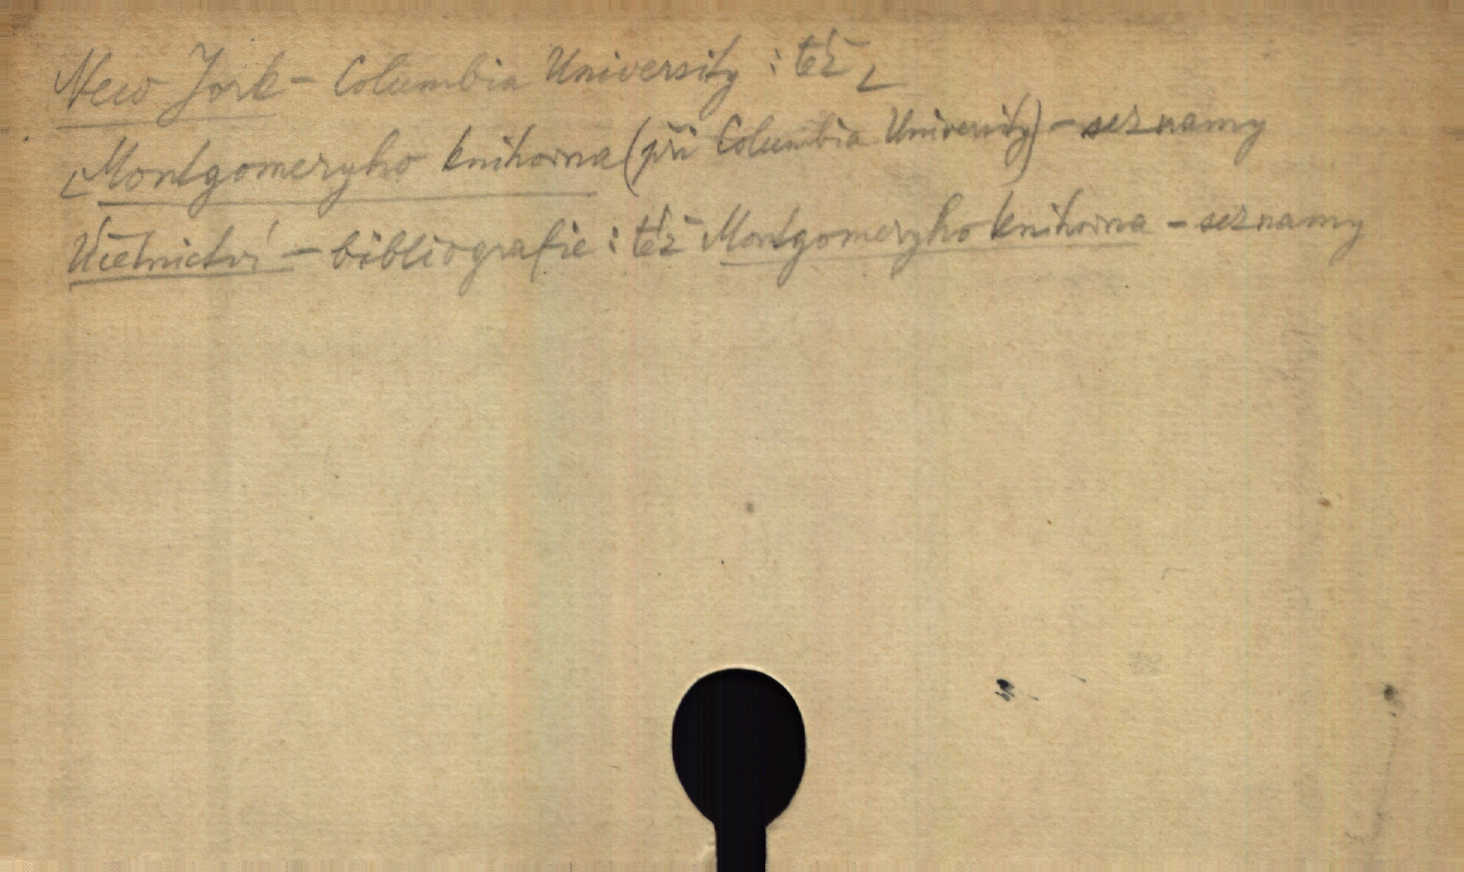 New York - Columbia University : též
Montgomeryho knihovna (při Columbia University) - seznamy
Účetnictví - bibliografie : též Montgomeryho knihovna - seznamy